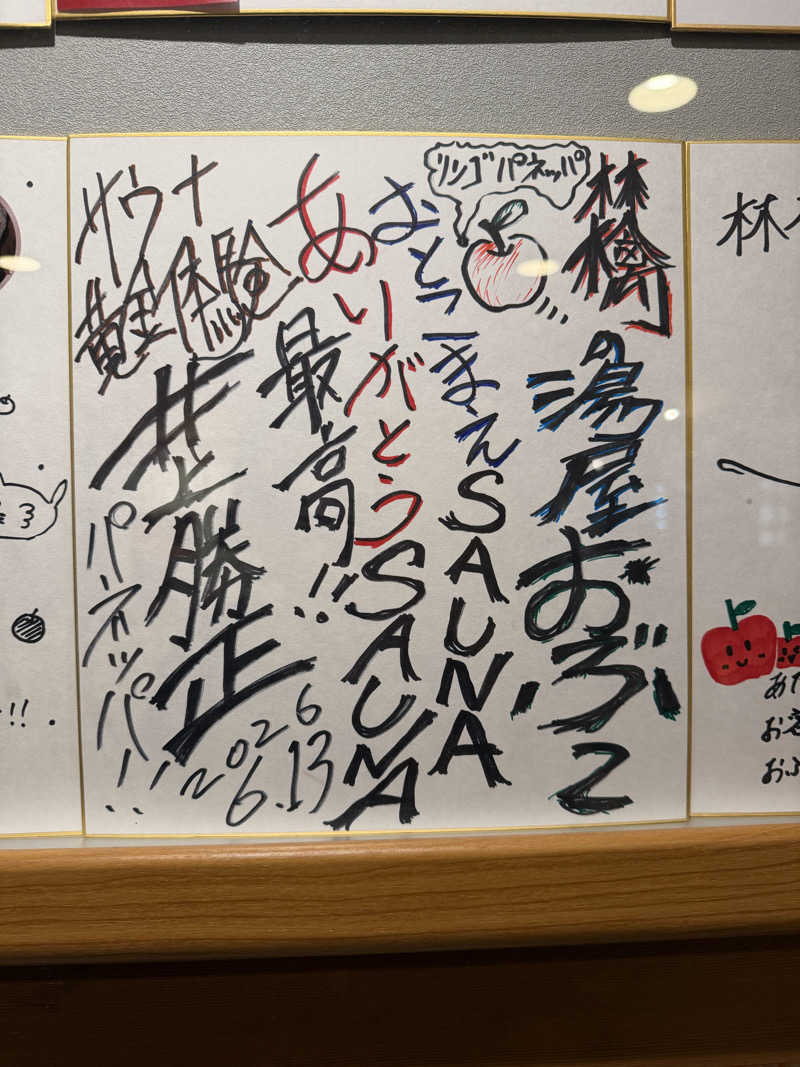 林檎の湯屋おぶ〜
リンゴパネッパ
おとこまえSAUNA
ありがとうSAUNA
最高!!
サウナ
黄金体験
井上勝正
パネッパ!!
2026
6.13
林